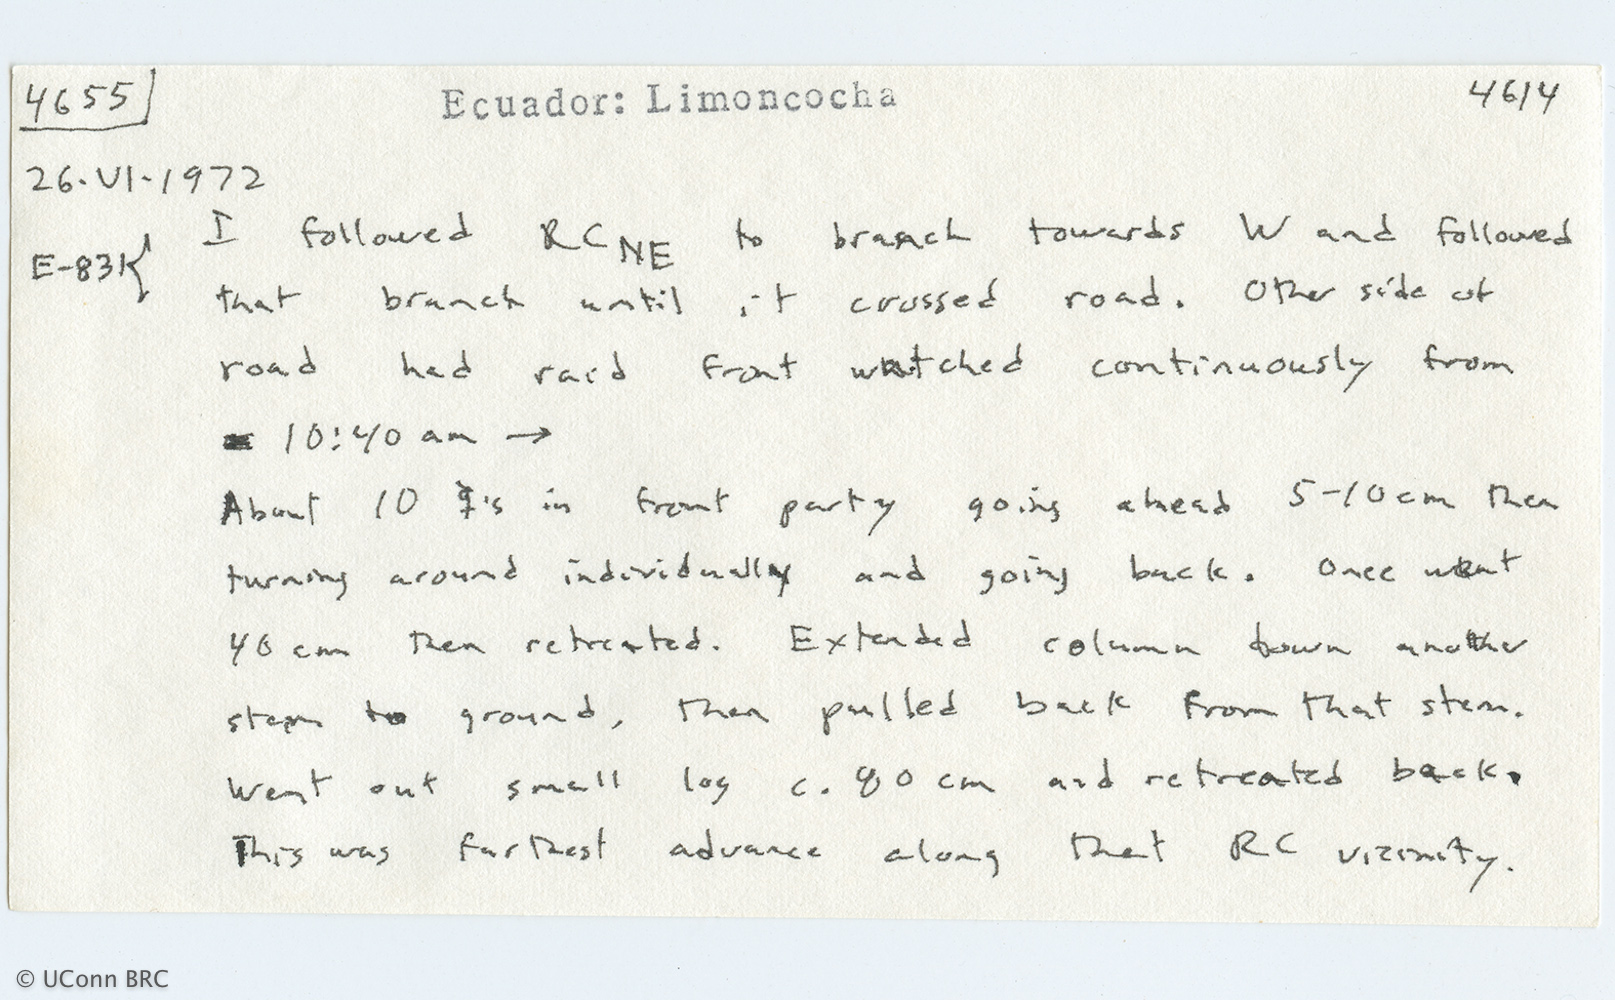 4655
Ecuador: Limoncocha
4614
26.VI.1972
E-83K{
I followed RC NE to branch towards W and followed
that branch until it crossed road. Other side of
road had raid front watched continuously from
10:40 am →
About 10 ☿'s in front party going ahead 5-10 cm then
turning around individually and going back. Once went
40 cm then retreated. Extended column down another
stem to ground, then pulled back from that stem.
Went out small log c. 80 cm and retreated back.
This was farthest advance along that RC vicinity.
© UConn BRC